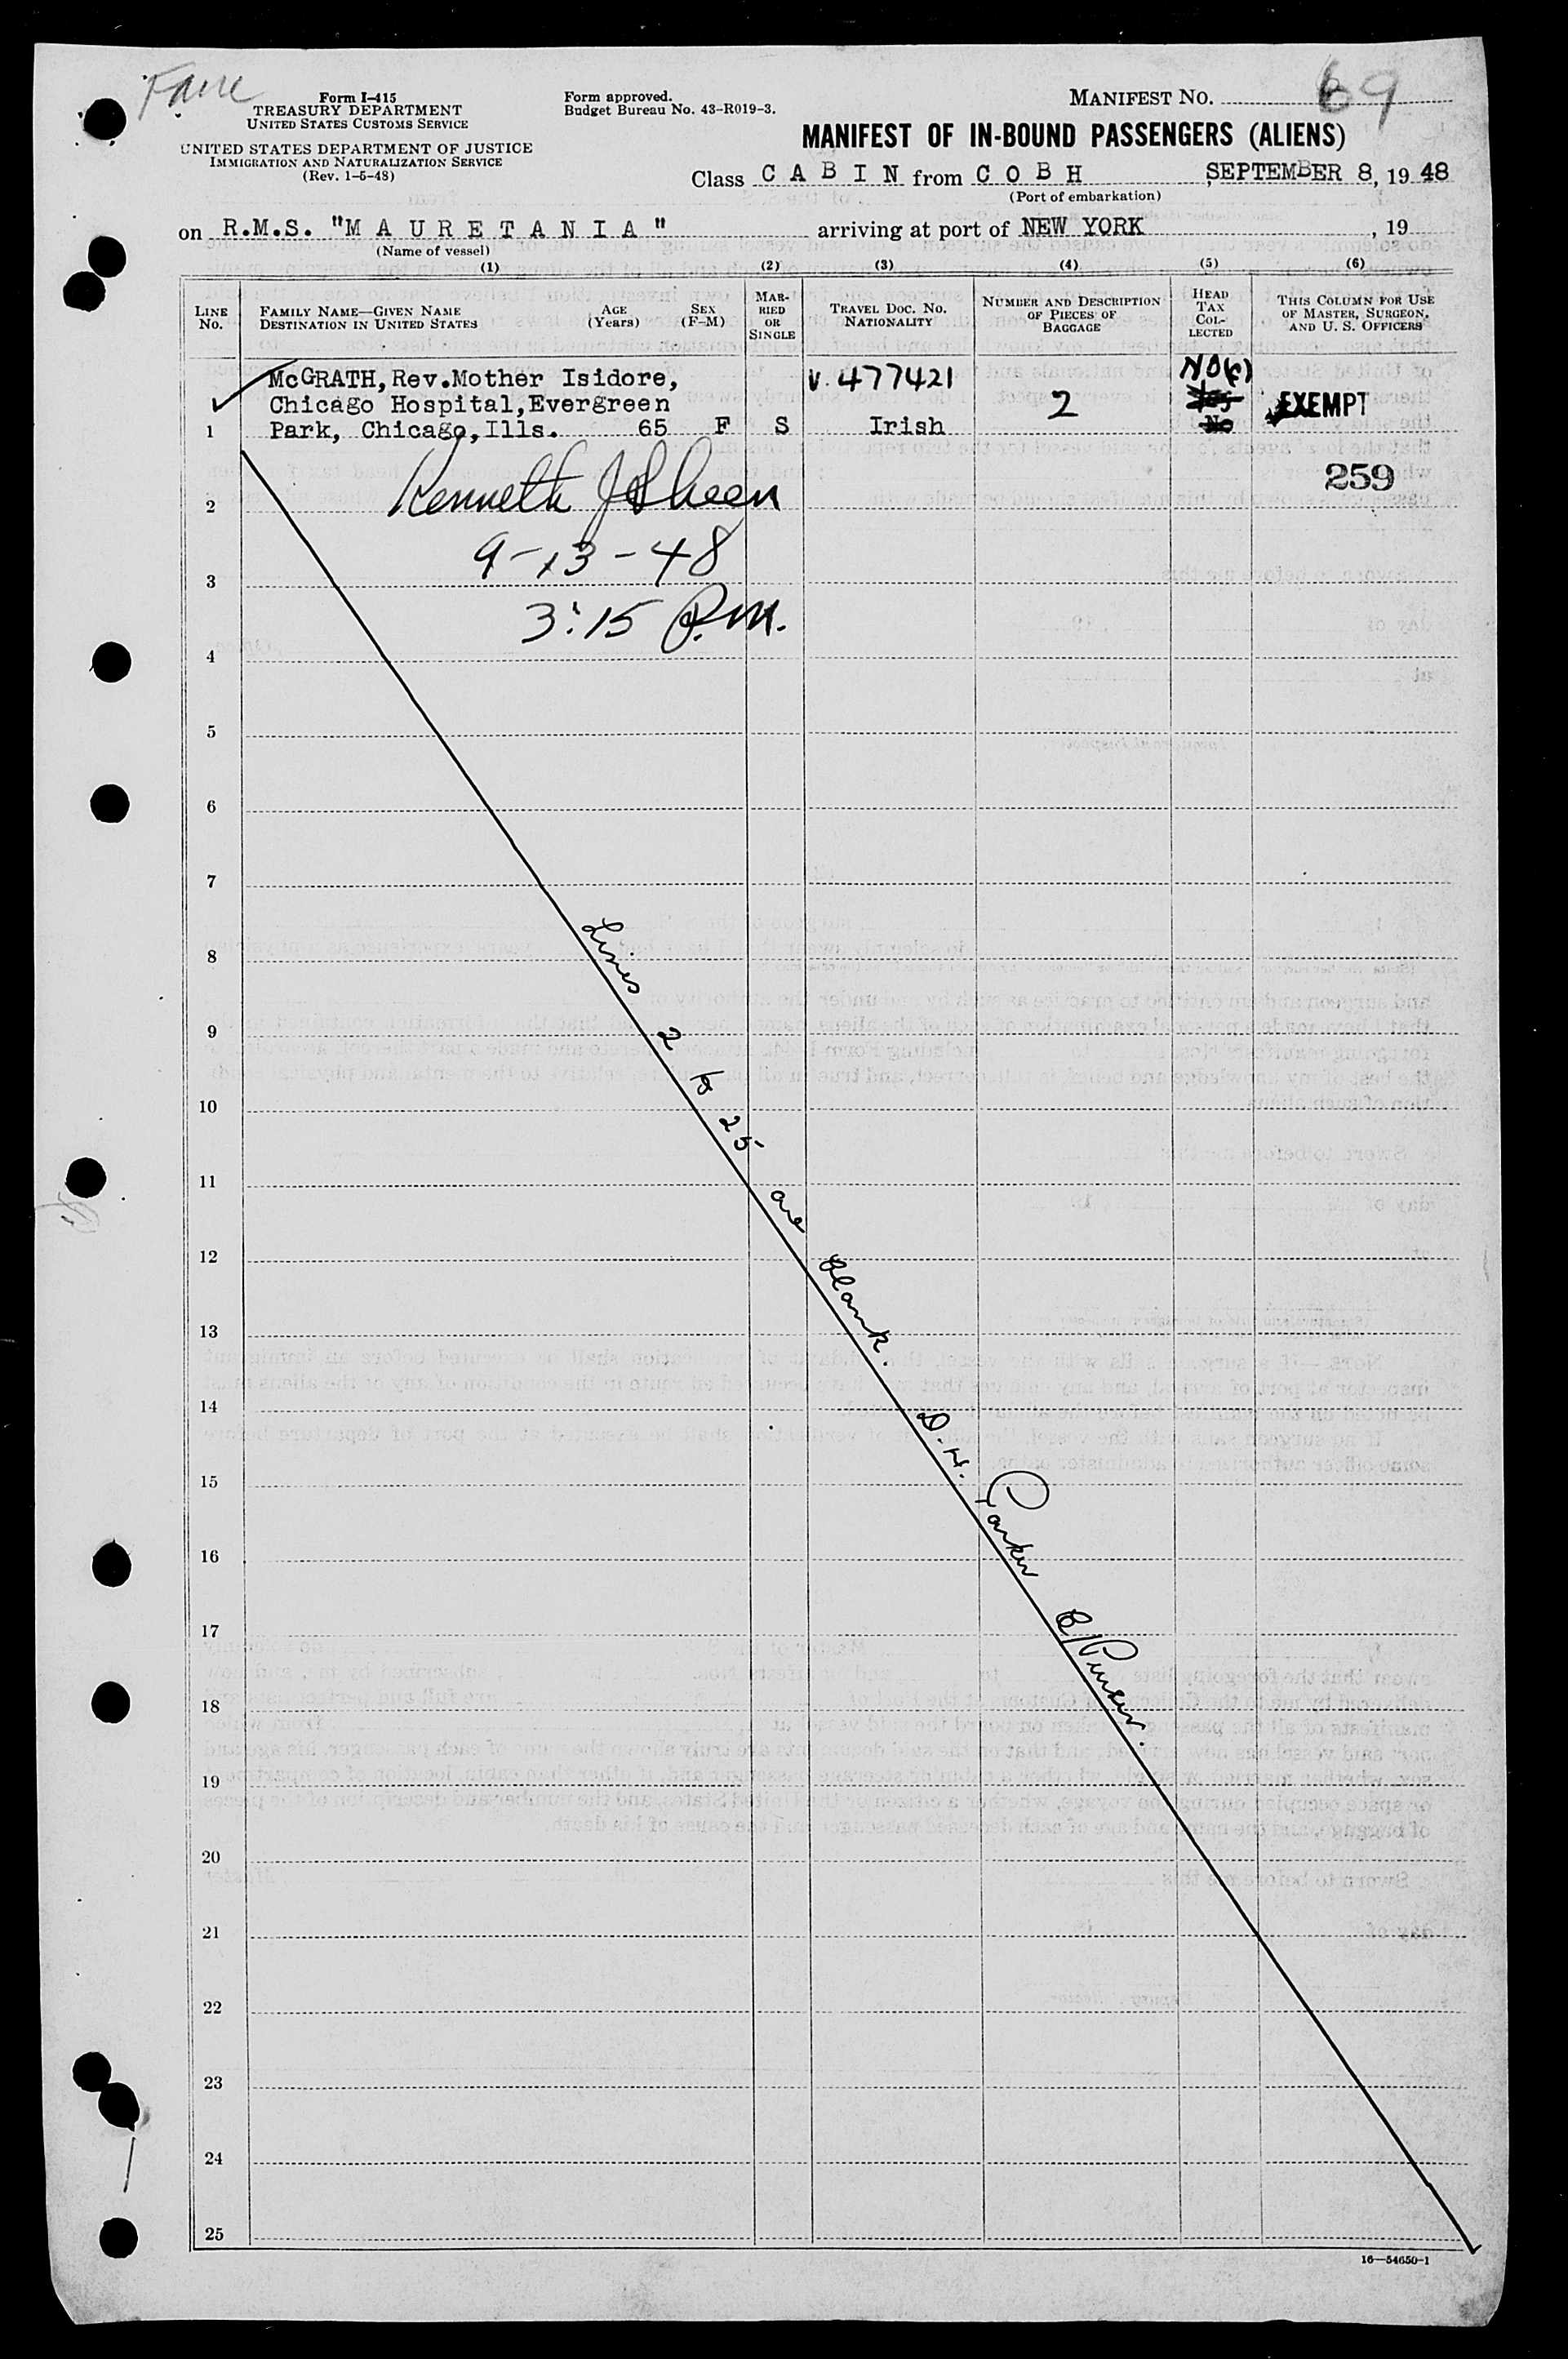 Form I-415
TREASURY DEPARTMENT
UNITED STATES CUSTOMS SERVICE
UNITED STATES DEPARTMENT OF JUSTICE
IMMIGRATION AND NATURALIZATION SERVICE
(Rev. 1-5-48)
Form approved.
Budget Bureau No. 43-R019-3.
MANIFEST NO. 69
MANIFEST OF IN-BOUND PASSENGERS (ALIENS)
Class CABIN from COBH SEPTEMBER 8, 19 48
(Port of embarkation)
on R.M.S. "MAURETANIA" arriving at port of NEW YORK , 19
(Name of vessel)
(1) (2) (3) (4) (5) (6)
LINE No.
FAMILY NAME—GIVEN NAME
DESTINATION IN UNITED STATES
AGE (Years)
SEX (F-M)
MAR-RIED OR SINGLE
TRAVEL DOC. NO. NATIONALITY
NUMBER AND DESCRIPTION OF PIECES OF BAGGAGE
HEAD TAX COL-LECTED
THIS COLUMN FOR USE OF MASTER, SURGEON, AND U. S. OFFICERS
McGRATH, Rev.Mother Isidore, V. 477421 NO(c)
Chicago Hospital, Evergreen 2 Yes EXEMPT
1 Park, Chicago, Ills. 65 F S Irish No
259
2 Kenneth J Sheen
3 9-13-48
4 3:15 P.M.
5
6
7
8
9
10
11
12
13
14
15
16
17
18
19
20
21
22
23
24
25
Lines 2 to 25 are blank. D.H. Parker
Purser.
16—54650-1